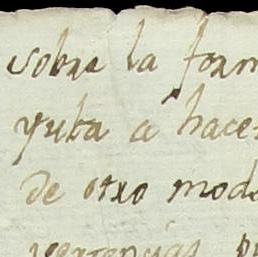 sobre la form
yuba á hacer
de otro modo
vertencias